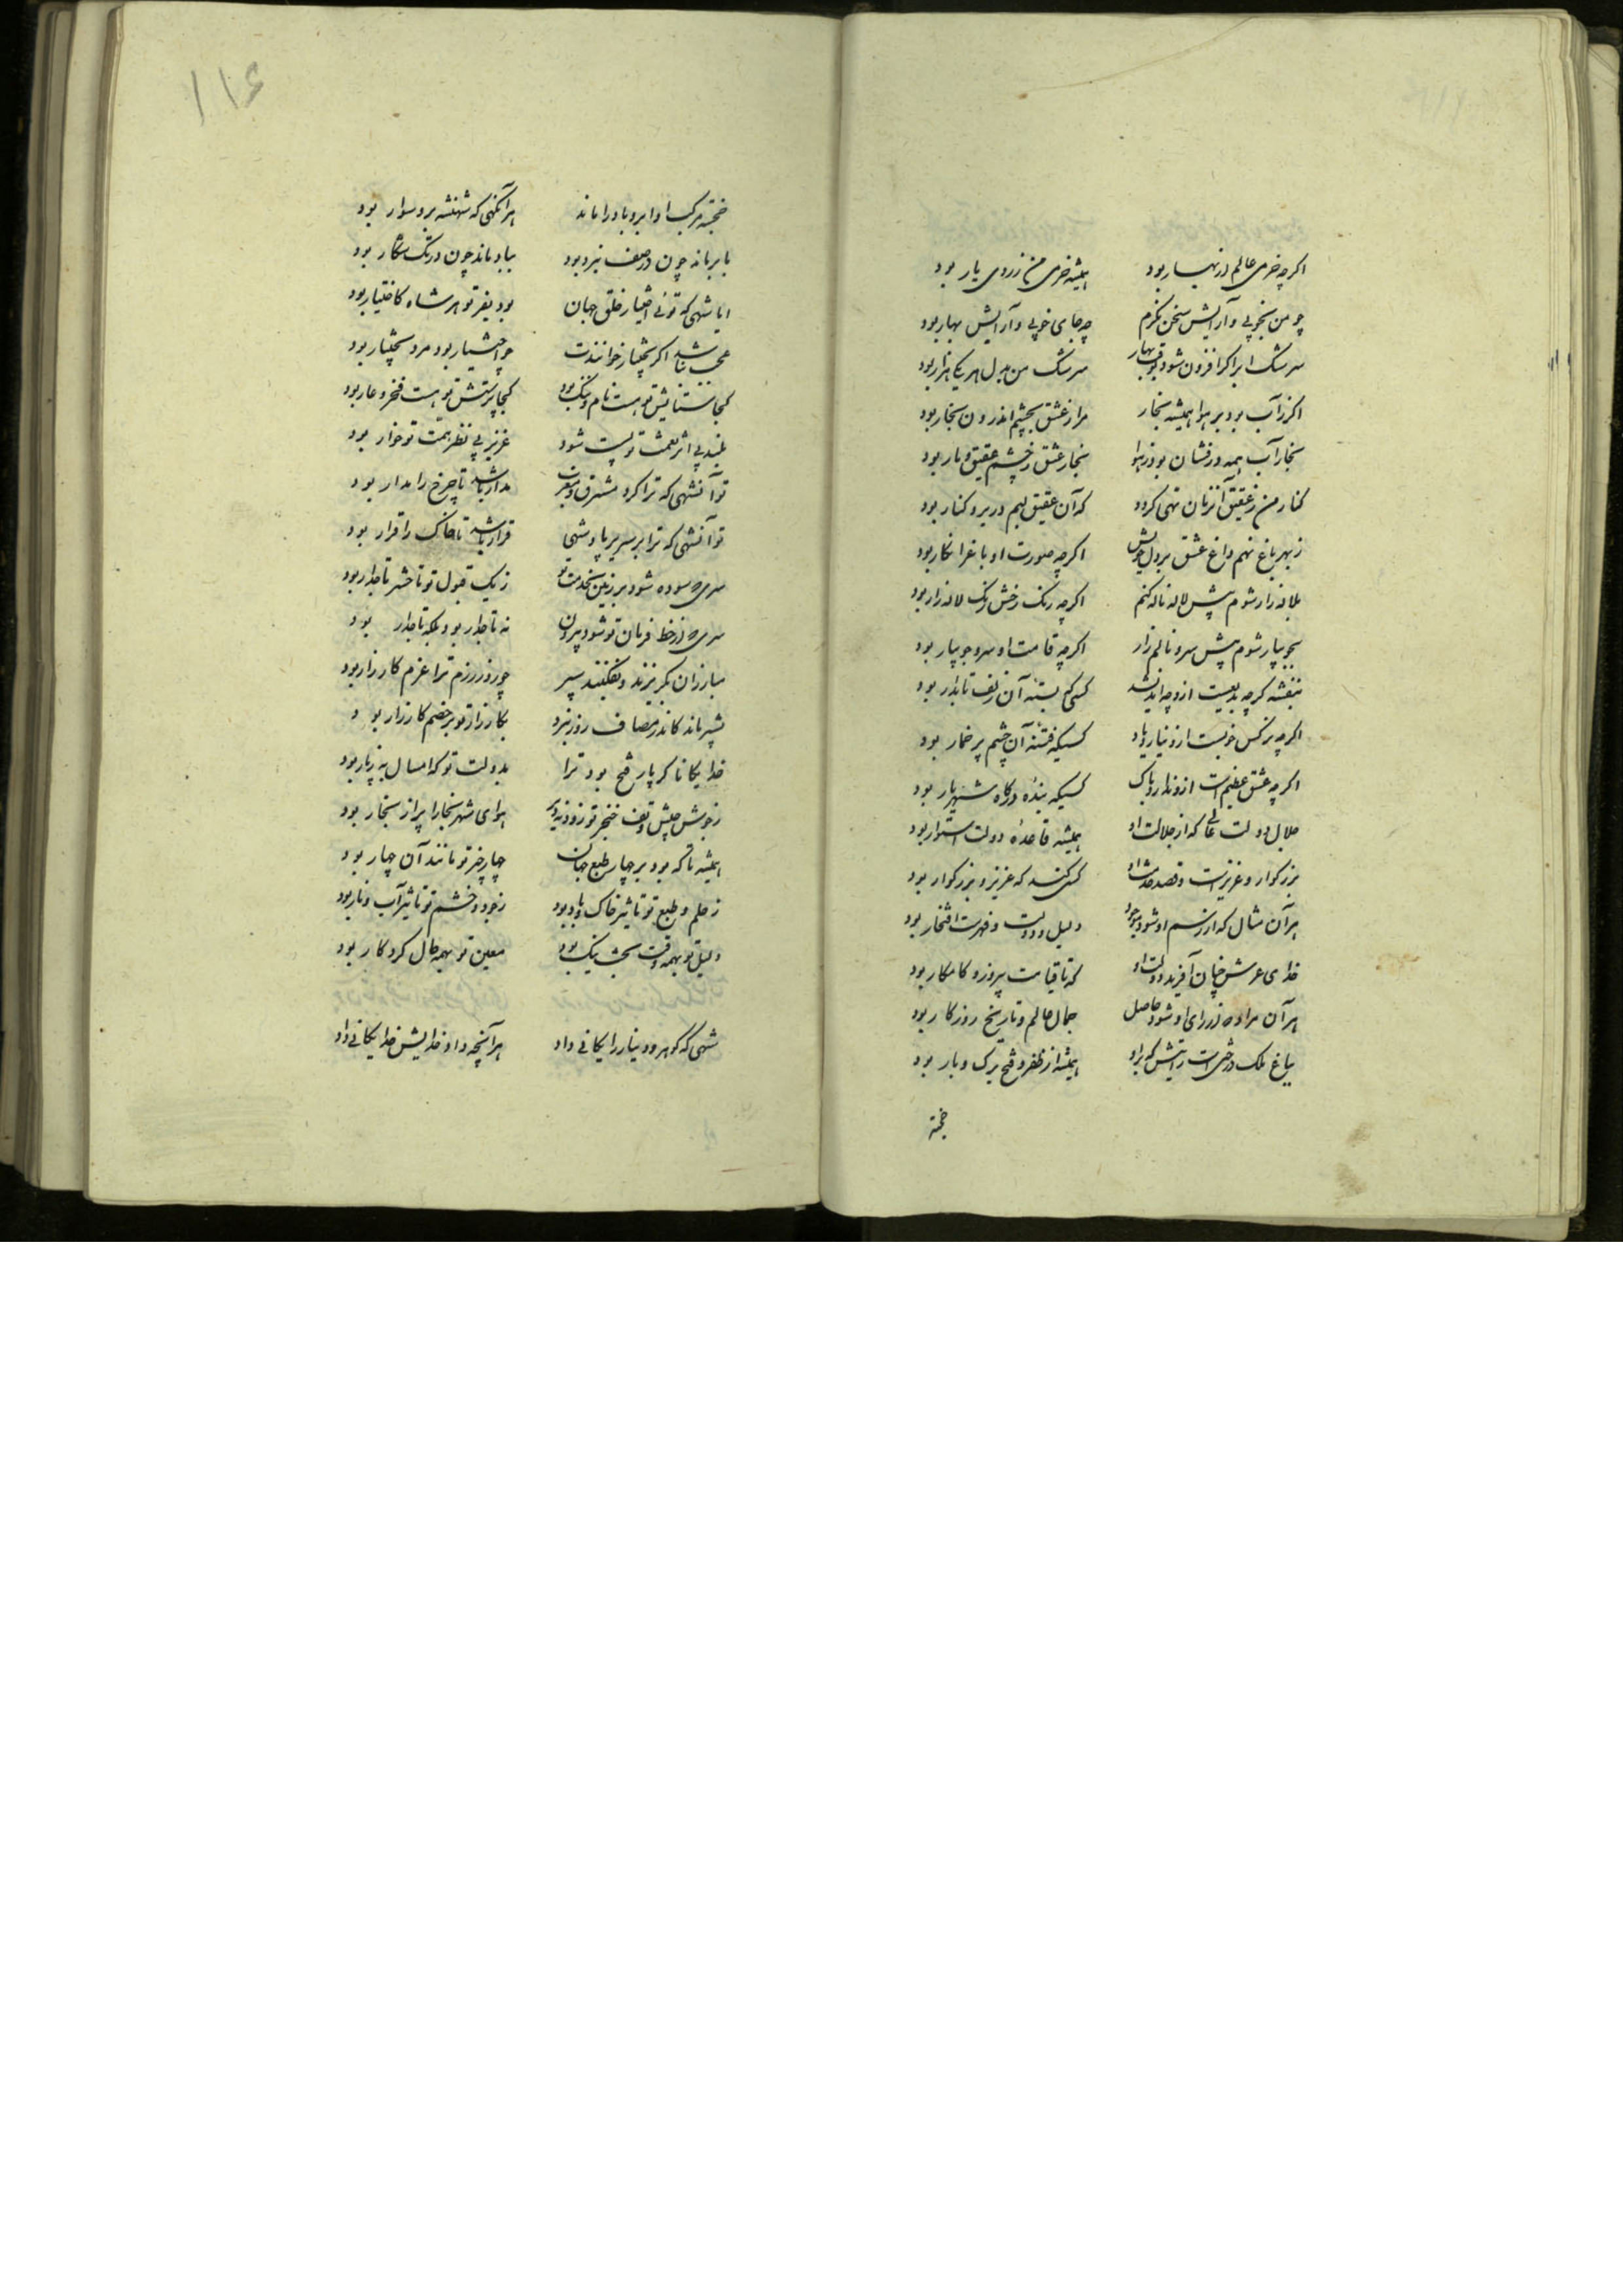 اگرچه خرمی عالم از بهار بود همیشه خرمی من ز روی یار بود
چو من بخوبی و آرایش سخن نگرم چه جای خوبی و آرایش بهار بود
سرشک ابر اگر افزون شود بوقت بهار سرشک من بدل هر یکی هزار بود
اگر ز آب بود بر هوا همیشه بخار مرا ز عشق بچشم اندرون بخار بود
بخار آب همه درفشان بود ز هوا بخار عشق ز چشم عقیق بار بود
کنار من ز عقیق آنزمان تهی گردد که آن عقیق لبم در بر و کنار بود
ز بهر باغ نهم داغ عشق بر دل خویش اگرچه صورت او باغ را نگار بود
بلاله زار شوم پیش لاله ناله کنم اگرچه رنگ رخش رنگ لاله زار بود
بجویبار شوم پیش سرو نالم زار اگرچه قامت او سرو جویبار بود
بنفشه گرچه بدیعست ازو چه اندیشد کسی که بسته آن زلف تابدار بود
اگرچه نرگس خوبست ازو نیارد یاد کسیکه فتنه آن چشم پر خمار بود
اگرچه عشق عظیم است ازو ندارد باک کسیکه بنده درگاه شهریار بود
جلال دولت عالی که از جلالت او همیشه قاعده دولت استوار بود
بزرگوار و عزیزست و قصد خدمت او کسی کند که عزیز و بزرگوار بود
هر آن مثال که از رسم او شود موجود دلیل دولت و فهرست افتخار بود
خدای عرش چنان آفرید دولت او که تا قیامت پیروز و کامکار بود
هر آن مراد که از رای او شود حاصل جمال عالم و تاریخ روزگار بود
بباغ ملک درختی است رایتش که برو همیشه از ظفر و فتح برگ و بار بود
خجسته
۱۱۶
خجسته مرکب او ابر و باد را ماند هر آنگهی که شهنشه برو سوار بود
بابر ماند چون در صف نبرد بود بباد ماند چون در تک شکار بود
ایا شهی که توئی اختیار خلق جهان بود بفر تو هر شاه کاختیار بود
عجب نباشد اگر بختیار خوانندت چو اختیار بود مرد بختیار بود
کجا ستایش تو هست نام و ننگ بود کجا پرستش تو هست فخر و عار بود
بلند بی اثر نعمت تو پست شود عزیز بی نظر همت تو خوار بود
تو آنشهی که ترا کرد مشرق و مغرب مدار باشد تا چرخ را مدار بود
تو آنشهی که ترا بر سریر پادشهی قرار باشد تا خاک را قرار بود
سری که سوده شود بر زمین بخدمت تو ز یک قبول تو تا حشر تاجدار بود
سری که از خط فرمان تو شود بیرون نه تاجدار بود بلکه تاجدار بود
مبارزان بگریزند و بفکنند سپر چو روز رزم ترا عزم کارزار بود
بشیر ماند کاندر مصاف روز نبرد بکارزار تو بر خصم کار زار بود
خدایگانا گر پار فتح بود ترا بدولت تو که امسال به ز پار بود
ز جوش جیش و تف خنجر تو زود نه دیر هوای شهر بخارا پر از بخار بود
همیشه تا که بود بر چهار طبع جهان چار چیز تو مانند آن چهار بود
ز حلم و طبع تو تاثیر خاک و باد بود ز جود و خشم تو تاثیر آب و نار بود
دلیل تو بهمه وقت بخت نیک بود معین تو بهمه حال کردگار بود
شهی که گوهر و دینار رایگانی داد هر آنچه داد خدایش خدایگانی داد